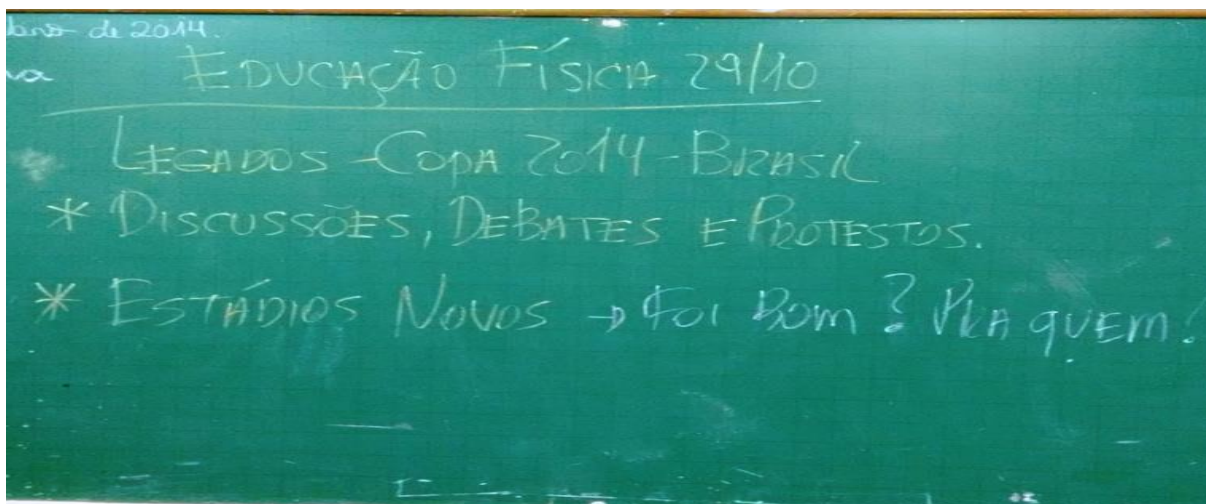 de 2014.
EDUCAÇÃO FÍSICA 29/10
LEGADOS - COPA 2014 - BRASIL
* DISCUSSÕES, DEBATES E PROTESTOS.
* ESTÁDIOS NOVOS → FOI BOM? PRA QUEM?